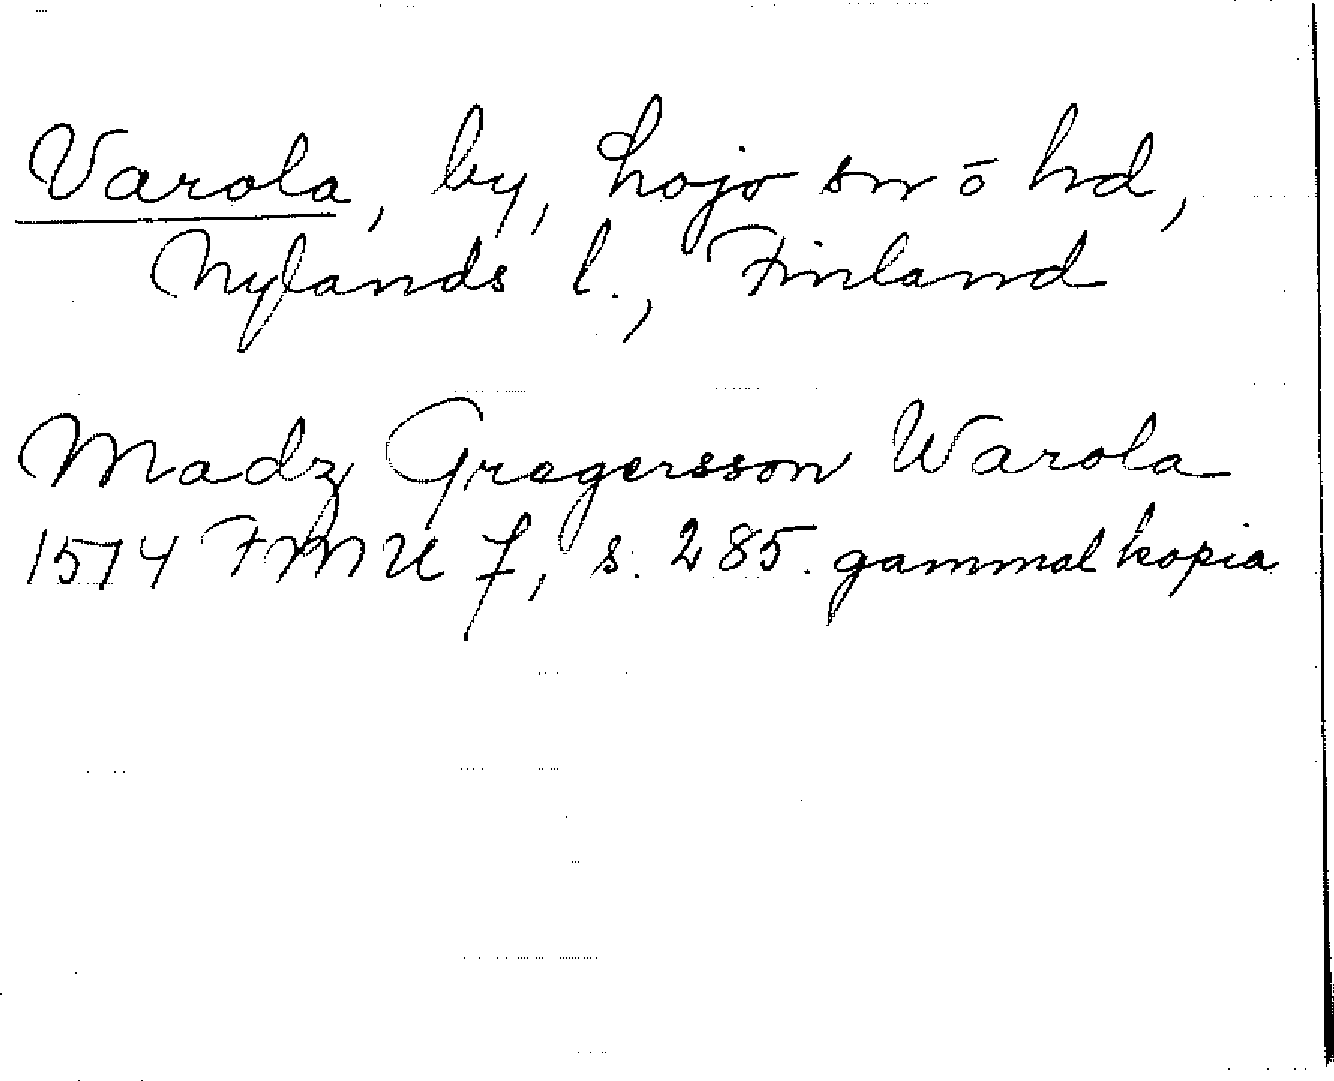 Varola, by, Lojo sn o hd,
Nylands l., Finland
Madz Gregersson Warola
1574 FMU 7, s. 285. gammal kopia